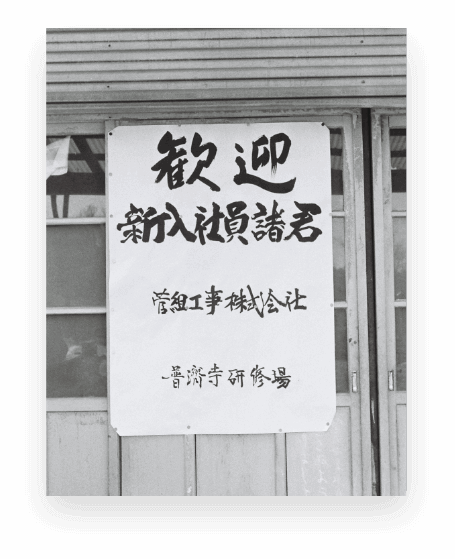 歓迎
新入社員諸君
菅組工事株式会社
普濟寺研修場